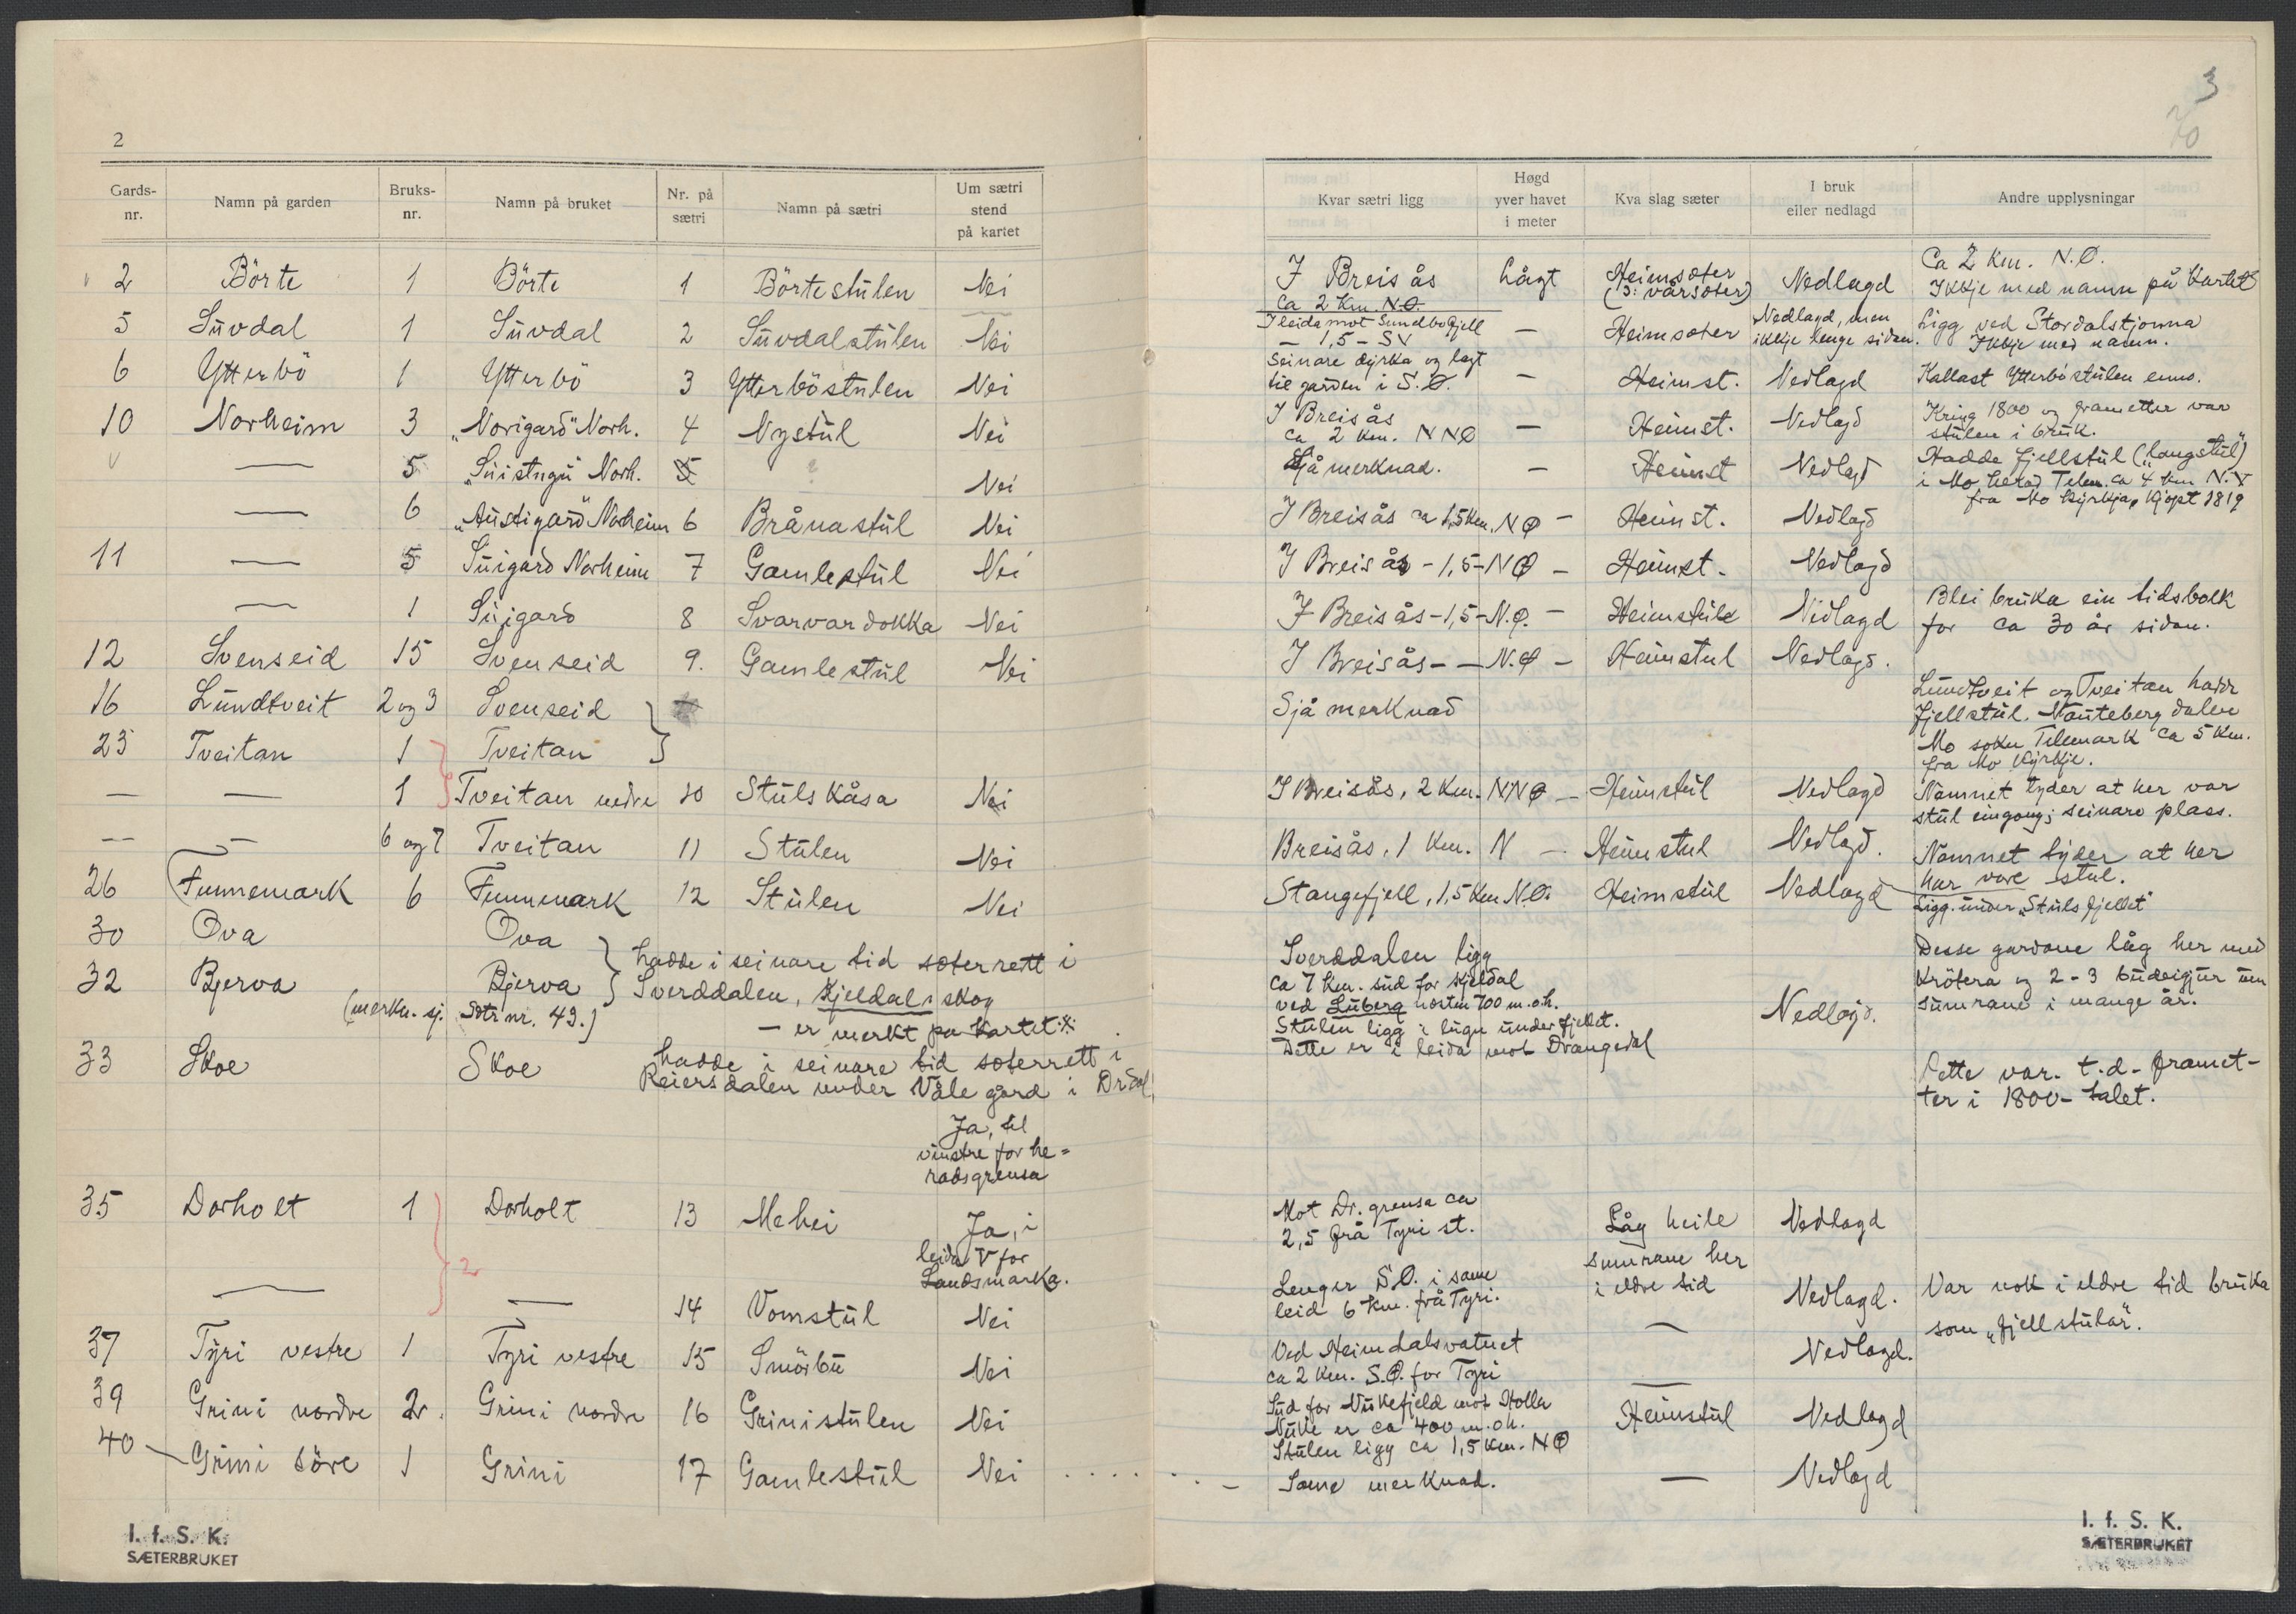 2
Gards-nr. | Namn på garden | Bruks-nr. | Namn på bruket | Nr. på sætri | Namn på sætri | Um sætri stend på kartet
2 Börte 1 Börte 1 Börtestulen Nei
5 Suvdal 1 Suvdal 2 Suvdalstulen Nei
6 Ytterbö 1 Ytterbö 3 Ytterböstulen Nei
10 Norheim 3 „Norigard" Norh. 4 Nystul Nei
— 5 „Suistugu" Norh. 5 ? Nei
— 6 „Austigard" Norheim 6 Brånastul Nei
11 — 5 Suigard Norheim 7 Gamlestul Nei
— 1 Suigard 8 Svarvardokka Nei
12 Svenseid 15 Svenseid 9. Gamlestul Nei
16 Lundtveit 2 og 3 Svenseid
23 Tveitan 1 Tveitan
— — 1 Tveitan nedre 10 Stulskåsa Nei
— — 6 og 7 Tveitan 11 Stulen Nei
26 Funnemark 6 Funnemark 12 Stulen Nei
30 Ova Ova
hadde i seinare tid sæterrett i
32 Bjerva Bjerva
Sverddalen, Kjeldal, skog
(merkn. sj. Sætr nr. 43.)
— er merkt på kartet
33 Skoe Skoe
hadde i seinare tid sæterrett i
Reiersdalen under Våle gard i Dr.dal
Ja, til
vinstre for he=
radsgrensa
35 Dorholt 1 Dorholt 13 Mehei Ja, i
leida V for
Landsmarka.
2
— — 14 Vomstul Nei
37 Tyri vestre 1 Tyri vestre 15 Smörbu Nei
39 Grini nordre 2 Grini nordre 16 Grinistulen Nei
40 Grini söre 1 Grini 17 Gamlestul Nei . . . .
I. f. S. K.
SÆTERBRUKET
3
Kvar sætri ligg | Høgd yver havet i meter | Kva slag sæter | I bruk eller nedlagd | Andre upplysningar
I Breisås lågt Heimsæter Nedlagd Ca 2 km. N.Ø.
Ca 2 Km. N.Ø. (ɔ: vårsæter) Ikkje med namn på kartet
I leida mot Sundbofjell — Heimsæter Nedlagd, men Ligg ved Stordalstjonna
— 1,5 – SV ikkje lenge sidan. Ikkje med namn.
Seinare dyrka og lagt
til garden i S.Ø. — Heimst. Nedlagd Kallast Ytterböstulen enno.
I Breisås
ca 2 km. NNØ — Heimst. Nedlagd Kring 1800 og frametter var
stulen i bruk.
Sjå merknad. — Heimst Nedlagd Hadde fjellstul („Langstul")
i Mo herad Telem. ca 4 km N.V
fra Mo kyrkja, kjøpt 1819
I Breisås ca 1,5 km. NØ — Heimst. Nedlagd
I Breisås – 1,5 – NØ — Heimst. Nedlagd
I Breisås – 1,5 – N.Ø. — Heimstul Nedlagd Blei bruka ein tidsbolk
for ca 30 år sidan.
I Breisås — — N.Ø — Heimstul Nedlagd.
Sjå merknad Lundtveit og Tveitan hadde
fjellstul. Nautebergdalen
Mo sokn Telemark ca 5 km.
fra Mo kyrkje.
I Breisås, 2 km. NNØ — Heimstul Nedlagd Namnet tyder at her var
stul eingong; seinare plass.
Breisås, 1 km. N — Heimstul Nedlagd. Namnet tyder at her
har vore stul.
Stangefjell, 1,5 km N.Ø. Heimstul Nedlagd Ligg under „Stulsfjellet"
Sverddalen ligg
ca 7 km. sud for Kjeldal
ved Luberg næsten 700 m.o.h.
Stulen ligg i lugn under fjellet.
Dette er i leida mot Drangedal
Nedlagd.
Desse gardane låg her med
krötera og 2 - 3 budeigjur um
sumrane i mange år.
Dette var t.d. framet-
ter i 1800-talet.
Mot Dr. grensa ca
2,5 frå Tyri st. Låg heile Nedlagd
sumrane her
i eldre tid
Lenger S.Ø. i same
leid 6 km. frå Tyri. Nedlagd. Var nok i eldre tid bruka
som „fjellstular".
Ved Heimdalsvatnet
ca 2 km. S.Ø. for Tyri — Nedlagd.
Sud for Nukefjeld mot Holla
Nuke er ca 400 m.o.h.
Stulen ligg ca 1,5 km. NØ Heimstul Nedlagd
. . — Same merknad. — Nedlagd
I. f. S. K.
SÆTERBRUKET